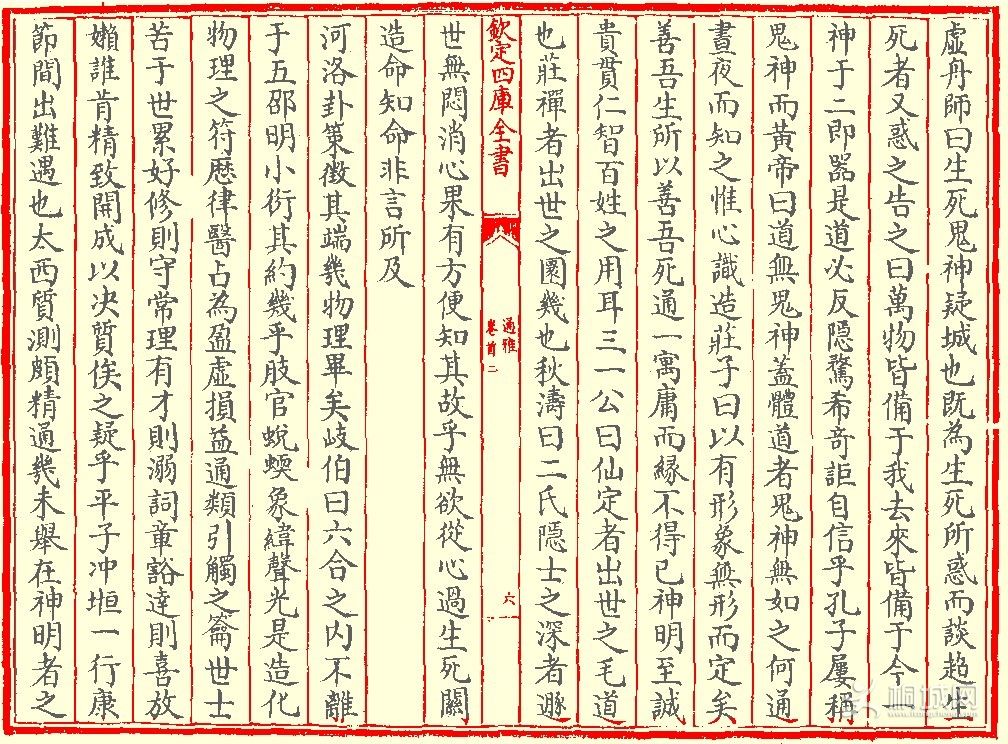 虛舟師曰生死鬼神疑城也既為生死所惑而談超生
死者又惑之告之曰萬物皆備于我去來皆備于今一
神于二即器是道必反隱騖希竒詎自信乎孔子屢稱
鬼神而黃帝曰道無鬼神蓋體道者鬼神無如之何通
晝夜而知之惟心識造莊子曰以有形象無形而定矣
善吾生所以善吾死通一寓庸而縁不得已神明至誠
貴貫仁智百姓之用耳三一公曰仙定者出世之毛道
也莊禪者出世之圜幾也秋濤曰二氏隱士之深者遯
欽定四庫全書
通雅
卷首二
六
世無悶消心果有方便知其故乎無欲從心過生死關
造命知命非言所及
河洛卦策徴其端幾物理畢矣岐伯曰六合之内不離
于五邵明小衍其約幾乎肢官蛻蝡象緯聲光是造化
物理之符厯律醫占為盈虛損益通類引觸之籥世士
苦于世累好修則守常理有才則溺詞章豁達則喜放
嬾誰肯精致開成以决質俟之疑乎平子冲㮓一行康
節間出難遇也太西質測頗精通幾未舉在神明者之
桐城网